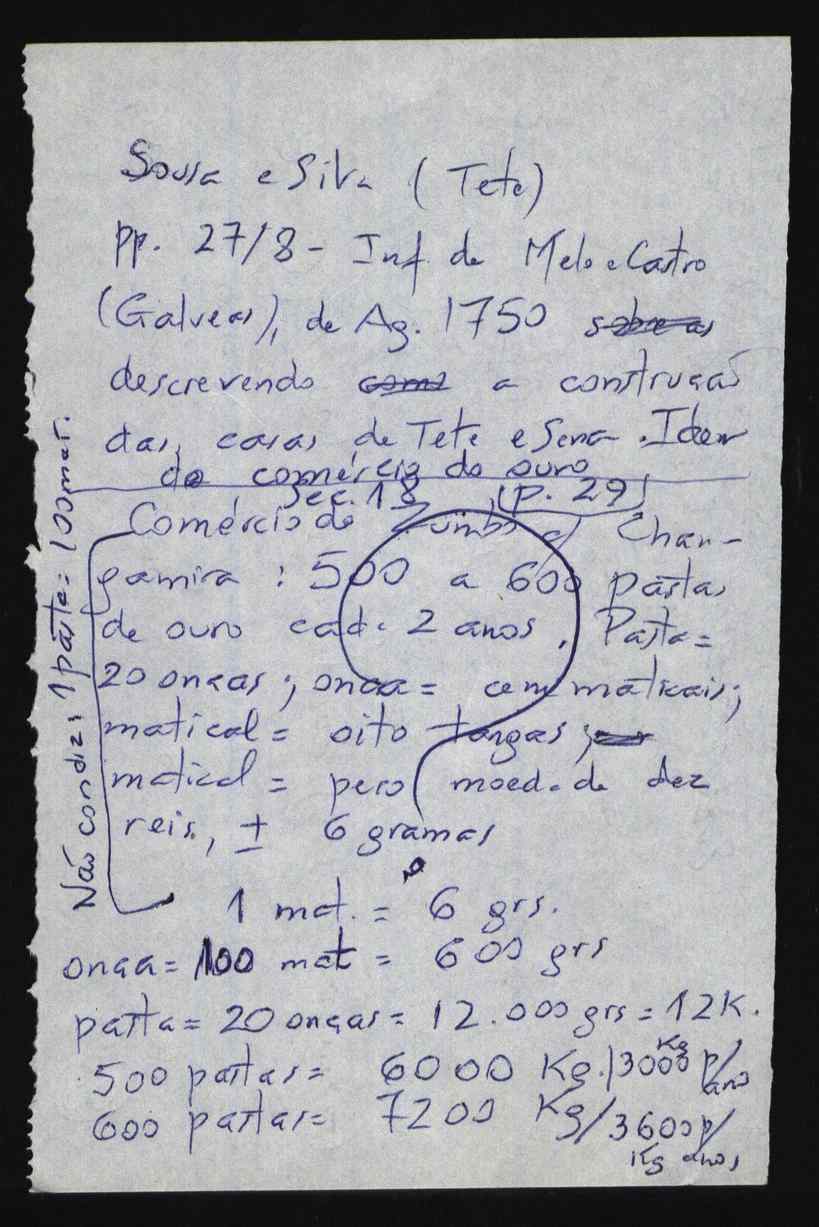 Sousa e Silva (Tete)
pp. 27/8 - Inf. de Melo e Castro
(Galveas), de Ag. 1750 sobre as
descrevendo como a construção
das casas de Tete e Sena. Idem
do comércio do ouro
Sec. 18 (p. 29)
Comércio do Zumbo c/ Chan-
gamira : 500 a 600 pastas
de ouro cada 2 anos. Pasta =
20 onças; onça = cem maticais;
matical = oito tangas;
matical = peso moeda de dez
reis, ± 6 gramas
1 mat. = 6 grs.
onça = 100 mat = 600 grs
pasta = 20 onças = 12.000 grs = 12K.
500 pastas = 6000 Kg. / 3000 Kg p/ ano
600 pastas = 7200 Kg / 3600 p/
Kg anos
Não condiz: 1 pasta = 100 mat.